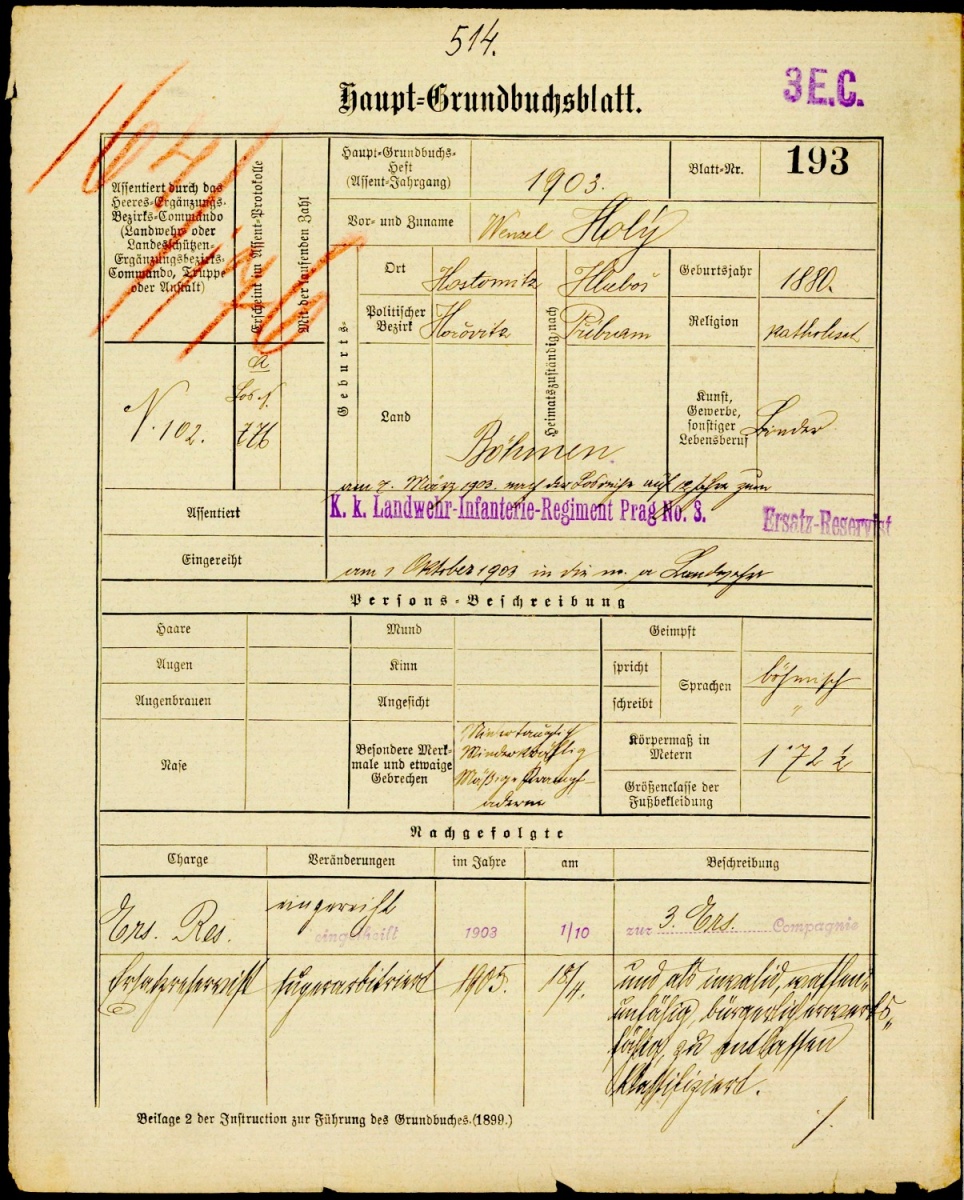 514.
Haupt-Grundbuchsblatt.
3 E.C.
Assentiert durch das
Heeres-Ergänzungs-
Bezirks-Commando
(Landwehr- oder
Landesschützen-
Ergänzungsbezirks-
Commando, Truppe
oder Anstalt)
Erscheint im Assent-Protokolle
Mit der laufenden Zahl
Haupt-Grundbuchs-
Heft
(Assent-Jahrgang)
1903.
Blatt-Nr.
193
Vor- und Zuname
Wenzel Holý
Geburts-
Ort
Hostomitz
Politischer
Bezirk
Hořovitz
Land
Böhmen
Heimatszuständig nach
Přibram
Geburtsjahr
1880.
Religion
Kunst,
Gewerbe,
sonstiger
Lebensberuf
Binder
N. 102.
Los N.
776
Assentiert
am 7. März 1903. nach der auf Jahre zum
K. k. Landwehr-Infanterie-Regiment Prag No. 8.
Ersatz-Reservist
Eingereiht
am 1 Oktober 1903 in die Landwehr
Persons-Beschreibung
Haare
Augen
Augenbrauen
Nase
Mund
Kinn
Angesicht
Besondere Merk-
male und etwaige
Gebrechen
Mindertauglich
Minderkräftig
Mäßige Krampf-
adern
Geimpft
spricht
schreibt
Sprachen
böhmisch
"
Körpermaß in
Metern
1·72 ½
Größenclasse der
Fußbekleidung
Nachgefolgte
Charge
Veränderungen
im Jahre
am
Beschreibung
Ers. Res.
eingereiht
eingetheilt
1903
1/10
zur 3. Ers. Compagnie
Ersatzreservist
superarbitriert
1905.
18/4.
und als invalid, waffen-
unfähig, bürgerlich erwerbs-
fähig, zu entlassen
klassifiziert.
Beilage 2 der Instruction zur Führung des Grundbuches. (1899.)